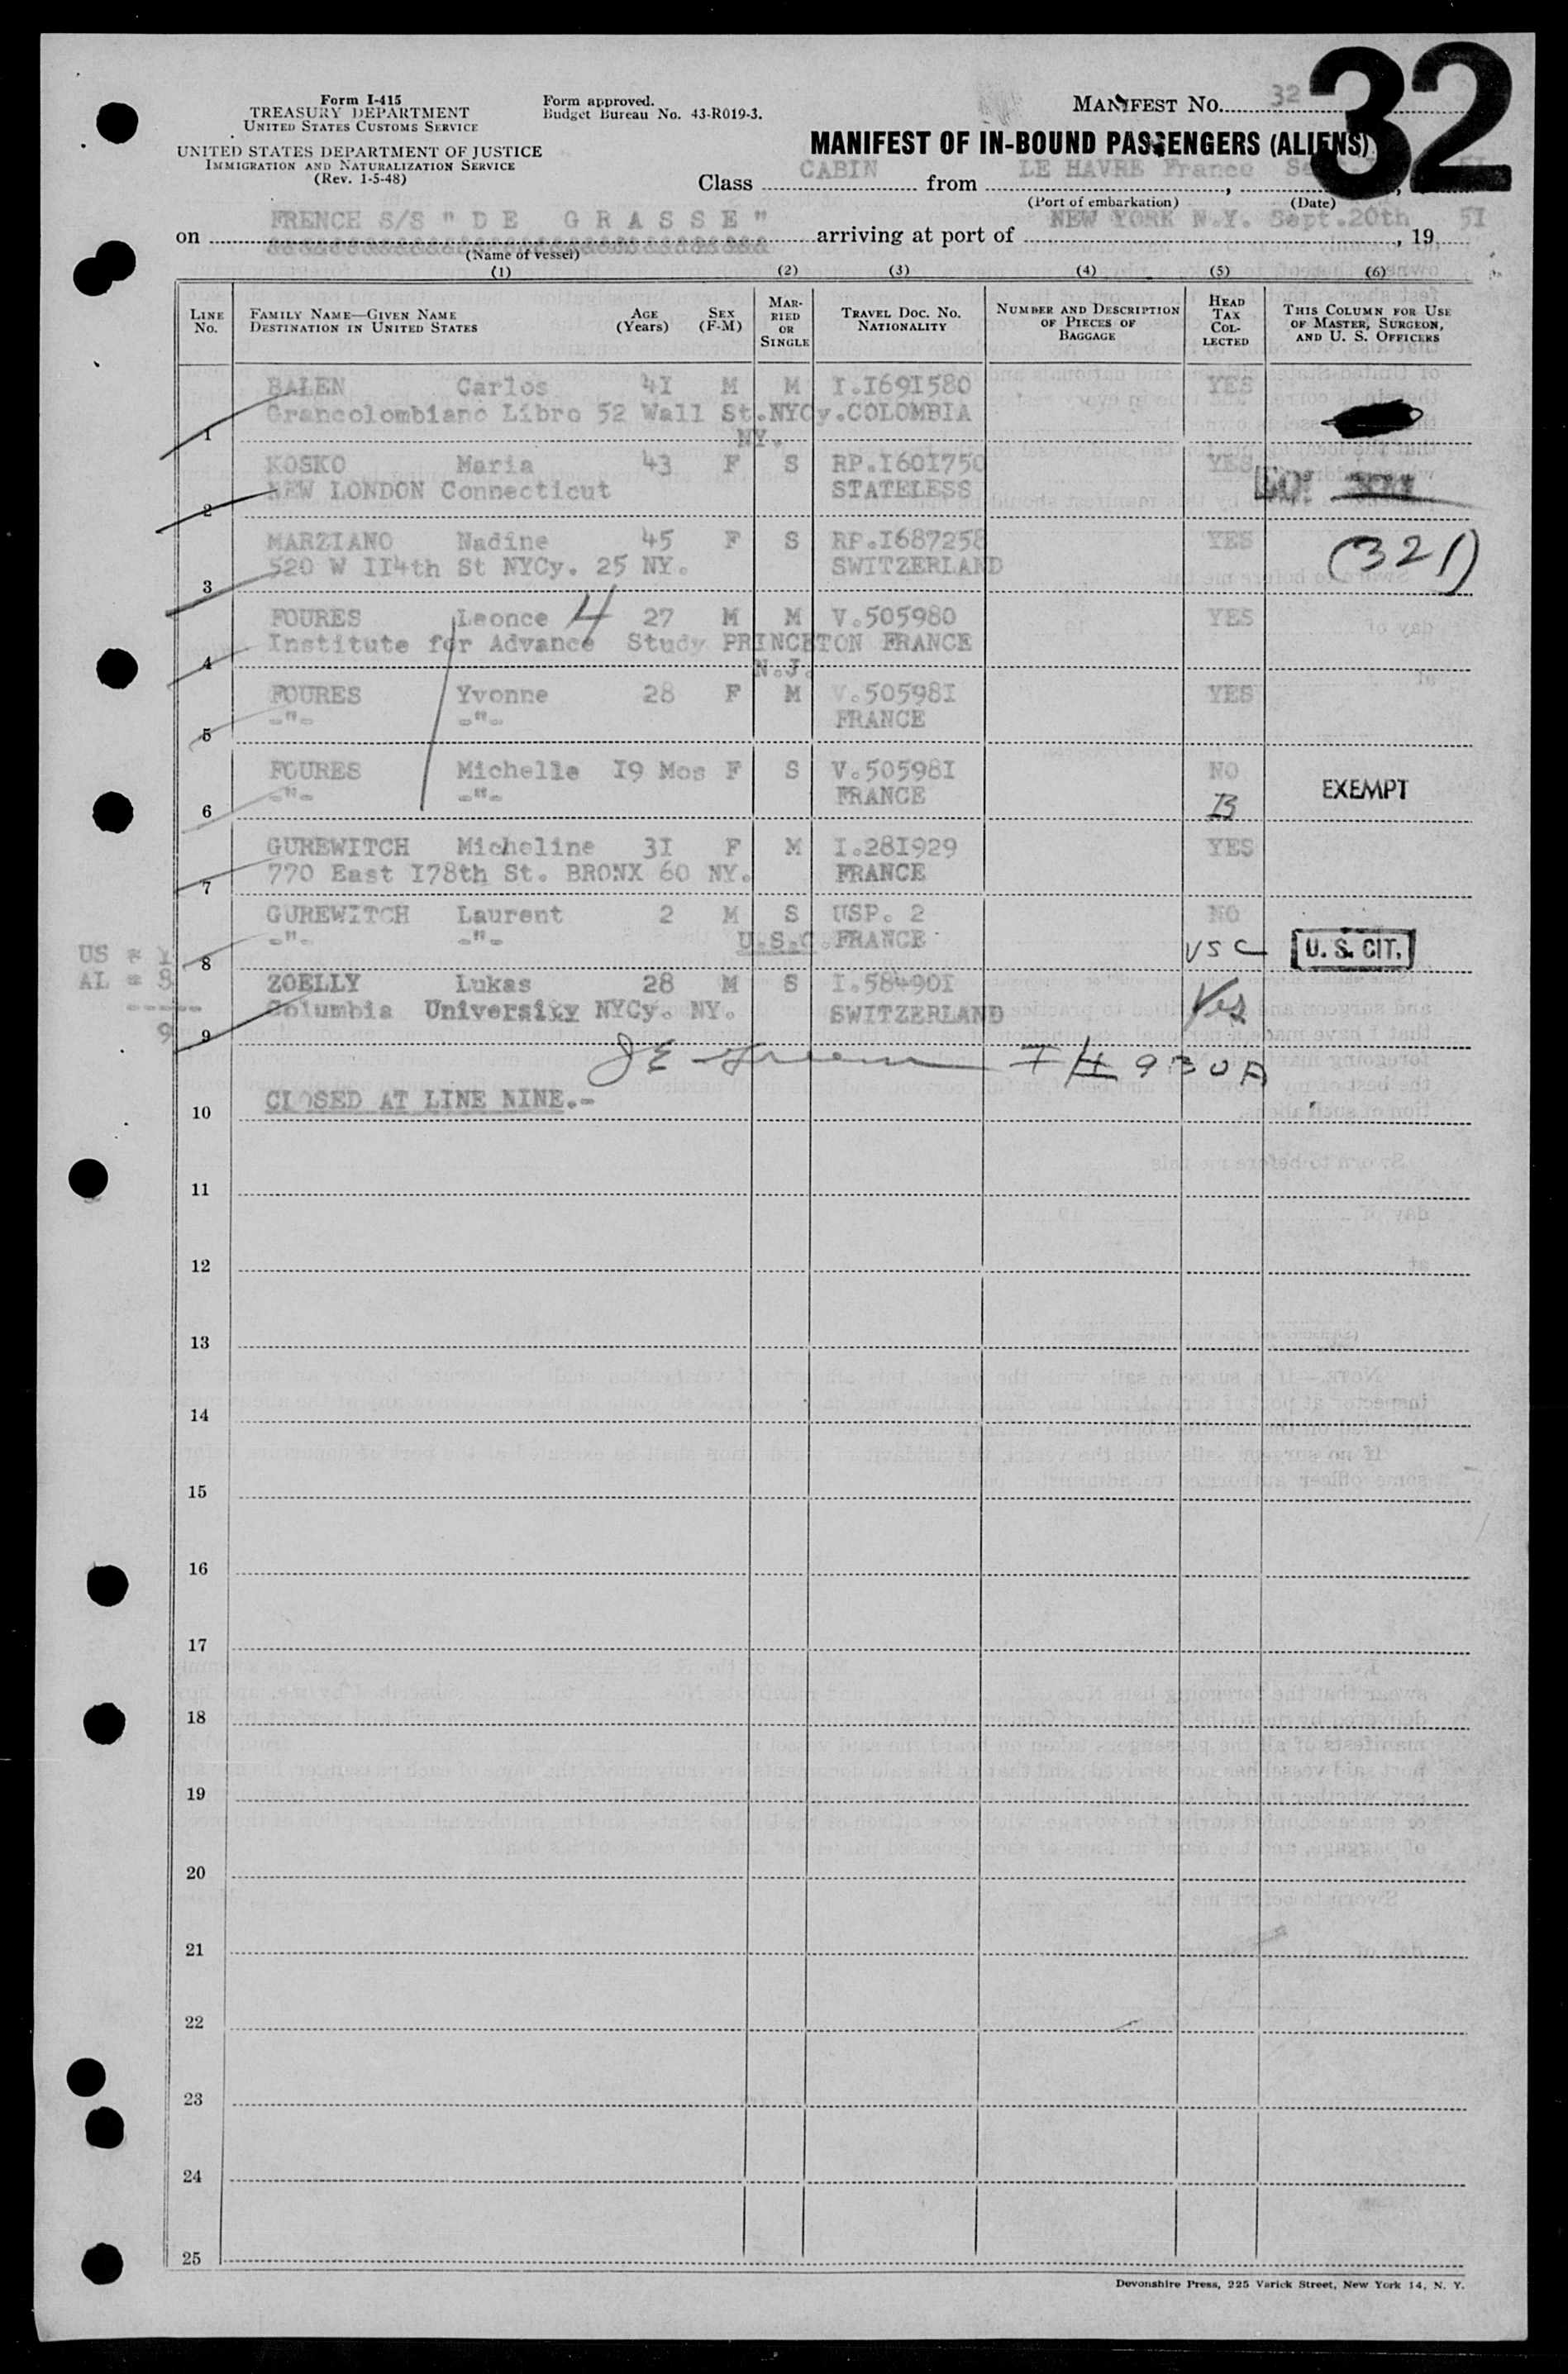 32
Form I-415
TREASURY DEPARTMENT
UNITED STATES CUSTOMS SERVICE
UNITED STATES DEPARTMENT OF JUSTICE
IMMIGRATION AND NATURALIZATION SERVICE
(Rev. 1-5-48)
Form approved.
Budget Bureau No. 43-R019-3.
MANIFEST NO. 32
MANIFEST OF IN-BOUND PASSENGERS (ALIENS)
Class CABIN from LE HAVRE France, 51
(Port of embarkation) (Date)
on FRENCH S/S " D E G R A S S E " arriving at port of NEW YORK N.Y. Sept.20th, 19 51
(Name of vessel)
(1) (2) (3) (4) (5) (6)
LINE No. FAMILY NAME—GIVEN NAME DESTINATION IN UNITED STATES AGE (Years) SEX (F-M) MARRIED OR SINGLE TRAVEL DOC. NO. NATIONALITY NUMBER AND DESCRIPTION OF PIECES OF BAGGAGE HEAD TAX COLLECTED THIS COLUMN FOR USE OF MASTER, SURGEON, AND U. S. OFFICERS
BALEN Carlos 41 M M I.I691580 YES
1 Grancolombiano Libro 52 Wall St.NYCy.COLOMBIA
NY.
KOSKO Maria 43 F S RP.I601750 YES
2 NEW LONDON Connecticut STATELESS
MARZIANO Nadine 45 F S RP.I687258 YES (321)
3 520 W II4th St NYCy. 25 NY. SWITZERLAND
FOURES Leonce 4 27 M M V.505980 YES
4 Institute for Advance Study PRINCETON FRANCE
N.J.
FOURES Yvonne 28 F M V.50598I YES
5 -"- -"- FRANCE
FOURES Michelle I9 Mos F S V.50598I NO
6 -"- -"- FRANCE B EXEMPT
GUREWITCH Micheline 3I F M I.28I929 YES
7 770 East I78th St. BRONX 60 NY. FRANCE
GUREWITCH Laurent 2 M S USP. 2 NO
8 -"- -"- U.S.C.FRANCE USC U. S. CIT.
US = 1
AL = 8
-----
9
ZOELLY Lukas 28 M S I.58490I Yes
9 Columbia University NYCy. NY. SWITZERLAND
10 CLOSED AT LINE NINE.-
11
12
13
14
15
16
17
18
19
20
21
22
23
24
25
Devonshire Press, 225 Varick Street, New York 14, N. Y.